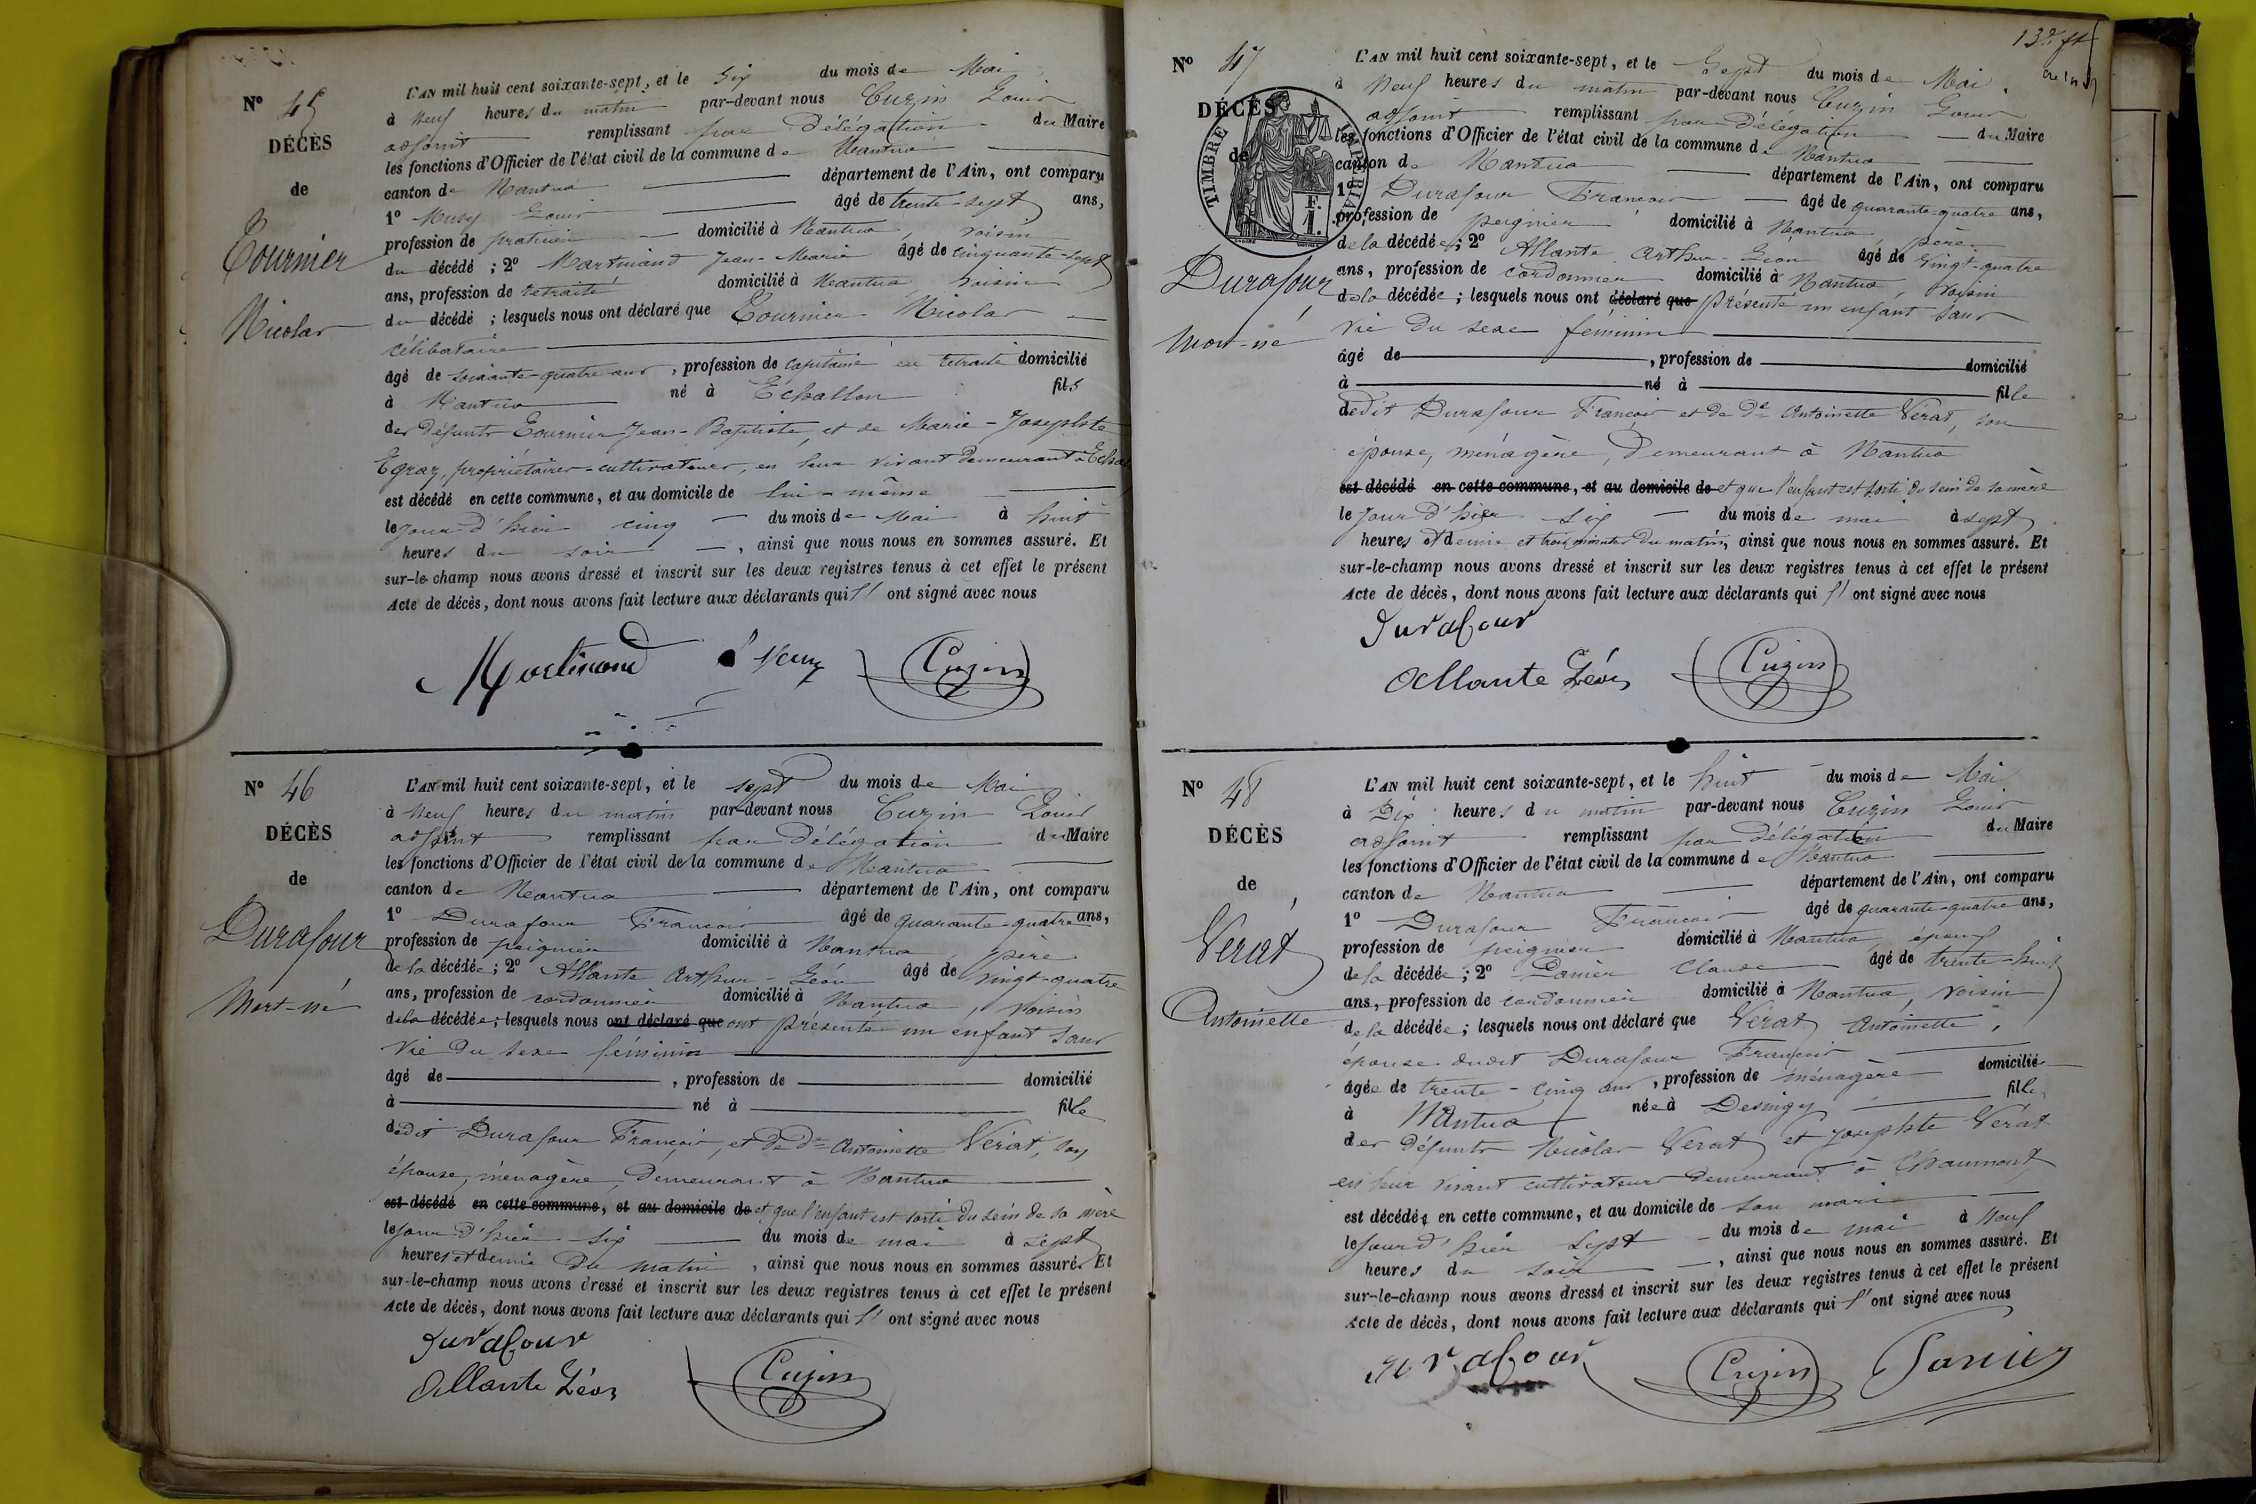 N° 45
DÉCÈS
de
Tournier
Nicolas
L'AN mil huit cent soixante-sept, et le Six du mois de Mai
à Neuf heures du matin par-devant nous Cuzin Louis
adjoint remplissant par Délégation du Maire
les fonctions d'Officier de l'état civil de la commune de Nantua
canton de Nantua département de l'Ain, ont comparu
1° Musy Louis âgé de trente-sept ans,
profession de praticien domicilié à Nantua, voisin
du décédé ; 2° Martinand Jean-Marie âgé de cinquante-sept
ans, profession de retraité domicilié à Nantua voisin
du décédé ; lesquels nous ont déclaré que Tournier Nicolas
célibataire
âgé de soixante-quatre ans, profession de capitaine en retraite domicilié
à Nantua né à Échallon fils
des défunts Tournier Jean-Baptiste, et de Marie-Josephte
Egraz, propriétaires-cultivateurs, en leur vivant demeurant à Échal
est décédé en cette commune, et au domicile de lui-même
le jour d'hier cinq du mois de Mai à huit
heures du soir, ainsi que nous nous en sommes assuré. Et
sur-le-champ nous avons dressé et inscrit sur les deux registres tenus à cet effet le présent
Acte de décès, dont nous avons fait lecture aux déclarants qui l' ont signé avec nous
Martinand L Musy Cuzin
N° 46
DÉCÈS
de
Durafour
Mort-né
L'AN mil huit cent soixante-sept, et le sept du mois de Mai
à Neuf heures du matin par-devant nous Cuzin Louis
adjoint remplissant par Délégation du Maire
les fonctions d'Officier de l'état civil de la commune de Nantua
canton de Nantua département de l'Ain, ont comparu
1° Durafour François âgé de quarante-quatre ans,
profession de peignier domicilié à Nantua, père
de la décédée ; 2° Allante Arthur-Léon âgé de vingt-quatre
ans, profession de cordonnier domicilié à Nantua, voisin
de la décédée ; lesquels nous ont déclaré que ont présenté un enfant sans
vie du sexe féminin
âgé de , profession de domicilié
à né à fille
dudit Durafour François, et de De Antoinette Vérat, son
épouse, ménagère, demeurant à Nantua
est décédé en cette commune, et au domicile de et que l'enfant est sorti du sein de sa mère
le jour d'hier six du mois de mai à sept
heures et demie du matin, ainsi que nous nous en sommes assuré. Et
sur-le-champ nous avons dressé et inscrit sur les deux registres tenus à cet effet le présent
Acte de décès, dont nous avons fait lecture aux déclarants qui l' ont signé avec nous
Durafour
Allante Léon Cuzin
N° 47
DÉCÈS
de
TIMBRE IMPERIAL
F.
1.
Durafour
Mort-né
L'AN mil huit cent soixante-sept, et le Sept du mois de Mai
à Neuf heures du matin par-devant nous Cuzin Louis
adjoint remplissant par Délégation du Maire
les fonctions d'Officier de l'état civil de la commune de Nantua
canton de Nantua département de l'Ain, ont comparu
1° Durafour François âgé de quarante-quatre ans,
profession de peignier domicilié à Nantua père
de la décédée ; 2° Allante Arthur-Léon âgé de vingt-quatre
ans, profession de cordonnier domicilié à Nantua, voisin
de la décédée ; lesquels nous ont déclaré que présenté un enfant sans
vie du sexe féminin
âgé de , profession de domicilié
à né à fille
dudit Durafour François et de De Antoinette Vérat, son
épouse, ménagère, demeurant à Nantua
est décédé en cette commune, et au domicile de et que l'enfant est sorti du sein de sa mère
le jour d'hier six du mois de mai à sept
heures et demie et trois minutes du matin, ainsi que nous nous en sommes assuré. Et
sur-le-champ nous avons dressé et inscrit sur les deux registres tenus à cet effet le présent
Acte de décès, dont nous avons fait lecture aux déclarants qui l' ont signé avec nous
Durafour
Allante Léon Cuzin
N° 48
DÉCÈS
de
Verat
Antoinette
L'AN mil huit cent soixante-sept, et le huit du mois de Mai
à Dix heures du matin par-devant nous Cuzin Louis
adjoint remplissant par délégation du Maire
les fonctions d'Officier de l'état civil de la commune de Nantua
canton de Nantua département de l'Ain, ont comparu
1° Durafour François âgé de quarante-quatre ans,
profession de peignier domicilié à Nantua, époux
de la décédée ; 2° Panier Claude âgé de trente-huit
ans, profession de cordonnier domicilié à Nantua, voisin
de la décédée ; lesquels nous ont déclaré que Verat Antoinette,
épouse dudit Durafour François
âgée de trente-cinq ans, profession de ménagère domicilié
à Nantua née à Desingy fille
des défunts Nicolas Verat et Josephte Vérat
en leur vivant cultivateurs demeurant à Chaumont
est décédée en cette commune, et au domicile de son mari
le jour d'hier sept du mois de mai à Neuf
heures du soir, ainsi que nous nous en sommes assuré. Et
sur-le-champ nous avons dressé et inscrit sur les deux registres tenus à cet effet le présent
Acte de décès, dont nous avons fait lecture aux déclarants qui l' ont signé avec nous
Durafour Cuzin Panier